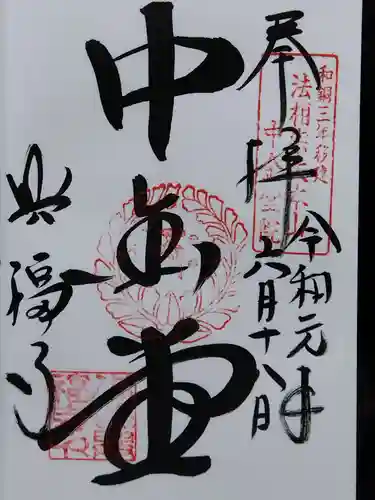 奉拝
令和元年
六月十八日
中金堂
興福寺
和銅三年移建
法相